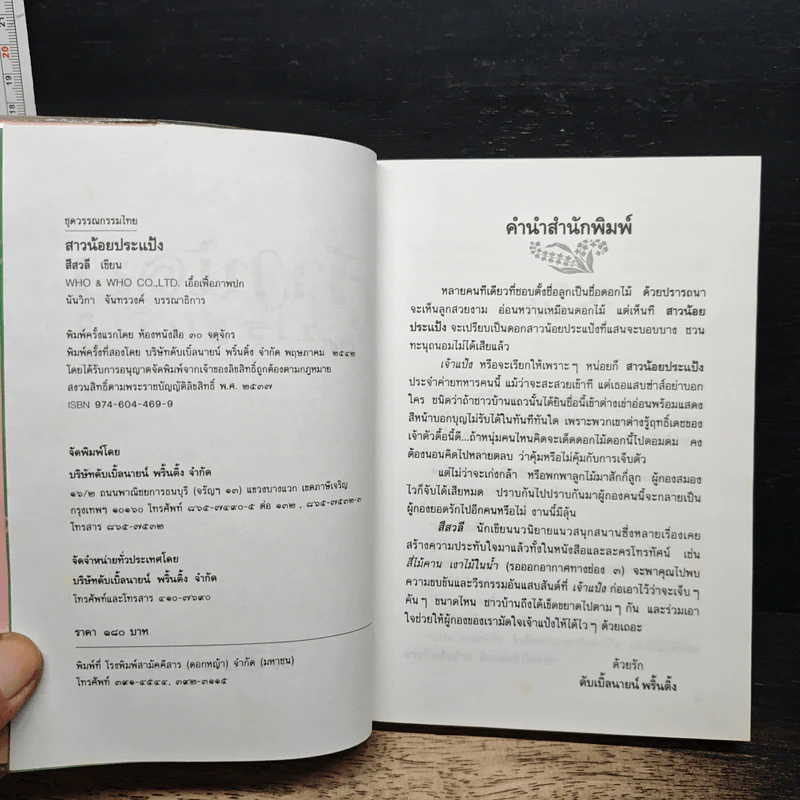 21
20
19
18
ชุดวรรณกรรมไทย
สาวน้อยประแป้ง
สีสวลี เขียน
WHO & WHO CO.,LTD. เอื้อเฟื้อภาพปก
นันวิกา จันทรวงศ์ บรรณาธิการ
พิมพ์ครั้งแรกโดย ห้องหนังสือ ๓๐ จตุจักร
พิมพ์ครั้งที่สองโดย บริษัทดับเบิ้ลนายน์ พริ้นติ้ง จำกัด พฤษภาคม ๒๕๔๒
โดยได้รับการอนุญาตจัดพิมพ์จากเจ้าของลิขสิทธิ์ถูกต้องตามกฎหมาย
สงวนสิทธิ์ตามพระราชบัญญัติลิขสิทธิ์ พ.ศ. ๒๕๓๗
ISBN 974-604-469-9
จัดพิมพ์โดย
บริษัทดับเบิ้ลนายน์ พริ้นติ้ง จำกัด
๑๖/๒ ถนนพาณิชยการธนบุรี (จรัญฯ ๑๓) แขวงบางแวก เขตภาษีเจริญ
กรุงเทพฯ ๑๐๑๖๐ โทรศัพท์ ๘๖๕-๗๔๙๐-๕ ต่อ ๑๓๒ , ๘๖๕-๗๕๓๒-๓
โทรสาร ๘๖๕-๗๕๓๒
จัดจำหน่ายทั่วประเทศโดย
บริษัทดับเบิ้ลนายน์ พริ้นติ้ง จำกัด
โทรศัพท์และโทรสาร ๔๑๐-๗๖๙๐
ราคา ๑๘๐ บาท
พิมพ์ที่ โรงพิมพ์สามัคคีสาร (ดอกหญ้า) จำกัด (มหาชน)
โทรศัพท์ ๓๙๑-๔๕๔๔, ๓๙๒-๓๑๑๕
คำนำสำนักพิมพ์
หลายคนทีเดียวที่ชอบตั้งชื่อลูกเป็นชื่อดอกไม้ ด้วยปรารถนา
จะเห็นลูกสวยงาม อ่อนหวานเหมือนดอกไม้ แต่เห็นที สาวน้อย
ประแป้ง จะเปรียบเป็นดอกสาวน้อยประแป้งที่แสนจะบอบบาง ชวน
ทะนุถนอมไม่ได้เสียแล้ว
เจ้าแป้ง หรือจะเรียกให้เพราะๆ หน่อยก็ สาวน้อยประแป้ง
ประจำค่ายทหารคนนี้ แม้ว่าจะสะสวยเข้าที แต่เธอแสบซ่าส์อย่าบอก
ใคร ชนิดว่าถ้าชาวบ้านแถวนั้นได้ยินชื่อนี้เข้าต่างเข่าอ่อนพร้อมแสดง
สีหน้าบอกบุญไม่รับได้ในทันทีทันใด เพราะพวกเขาต่างรู้ฤทธิ์เดชของ
เจ้าตัวดื้อนี้ดี...ถ้าหนุ่มคนไหนคิดจะเด็ดดอกไม้ดอกนี้ไปดอมดม คง
ต้องนอนคิดไปหลายตลบ ว่าคุ้มหรือไม่คุ้มกับการเจ็บตัว
แต่ไม่ว่าจะเก่งกล้า หรือพกพาลูกไม้มาสักกี่ลูก ผู้กองสมอง
ไวก็จับได้เสียหมด ปราบกันไปปราบกันมาผู้กองคนนี้จะกลายเป็น
ผู้กองยอดรักไปอีกคนหรือไม่ งานนี้มีลุ้น
สีสวลี นักเขียนนวนิยายแนวสนุกสนานซึ่งหลายเรื่องเคย
สร้างความประทับใจมาแล้วทั้งในหนังสือและละครโทรทัศน์ เช่น
สี่ไม้คาน เงาไม้ในน้ำ (รอออกอากาศทางช่อง ๓) จะพาคุณไปพบ
ความขบขันและวีรกรรมอันแสบสันต์ที่ เจ้าแป้ง ก่อเอาไว้ว่าจะเจ็บๆ
คันๆ ขนาดไหน ชาวบ้านถึงได้เข็ดขยาดไปตามๆ กัน และร่วมเอา
ใจช่วยให้ผู้กองของเรามัดใจเจ้าแป้งให้ได้ไวๆ ด้วยเถอะ
ด้วยรัก
ดับเบิ้ลนายน์ พริ้นติ้ง